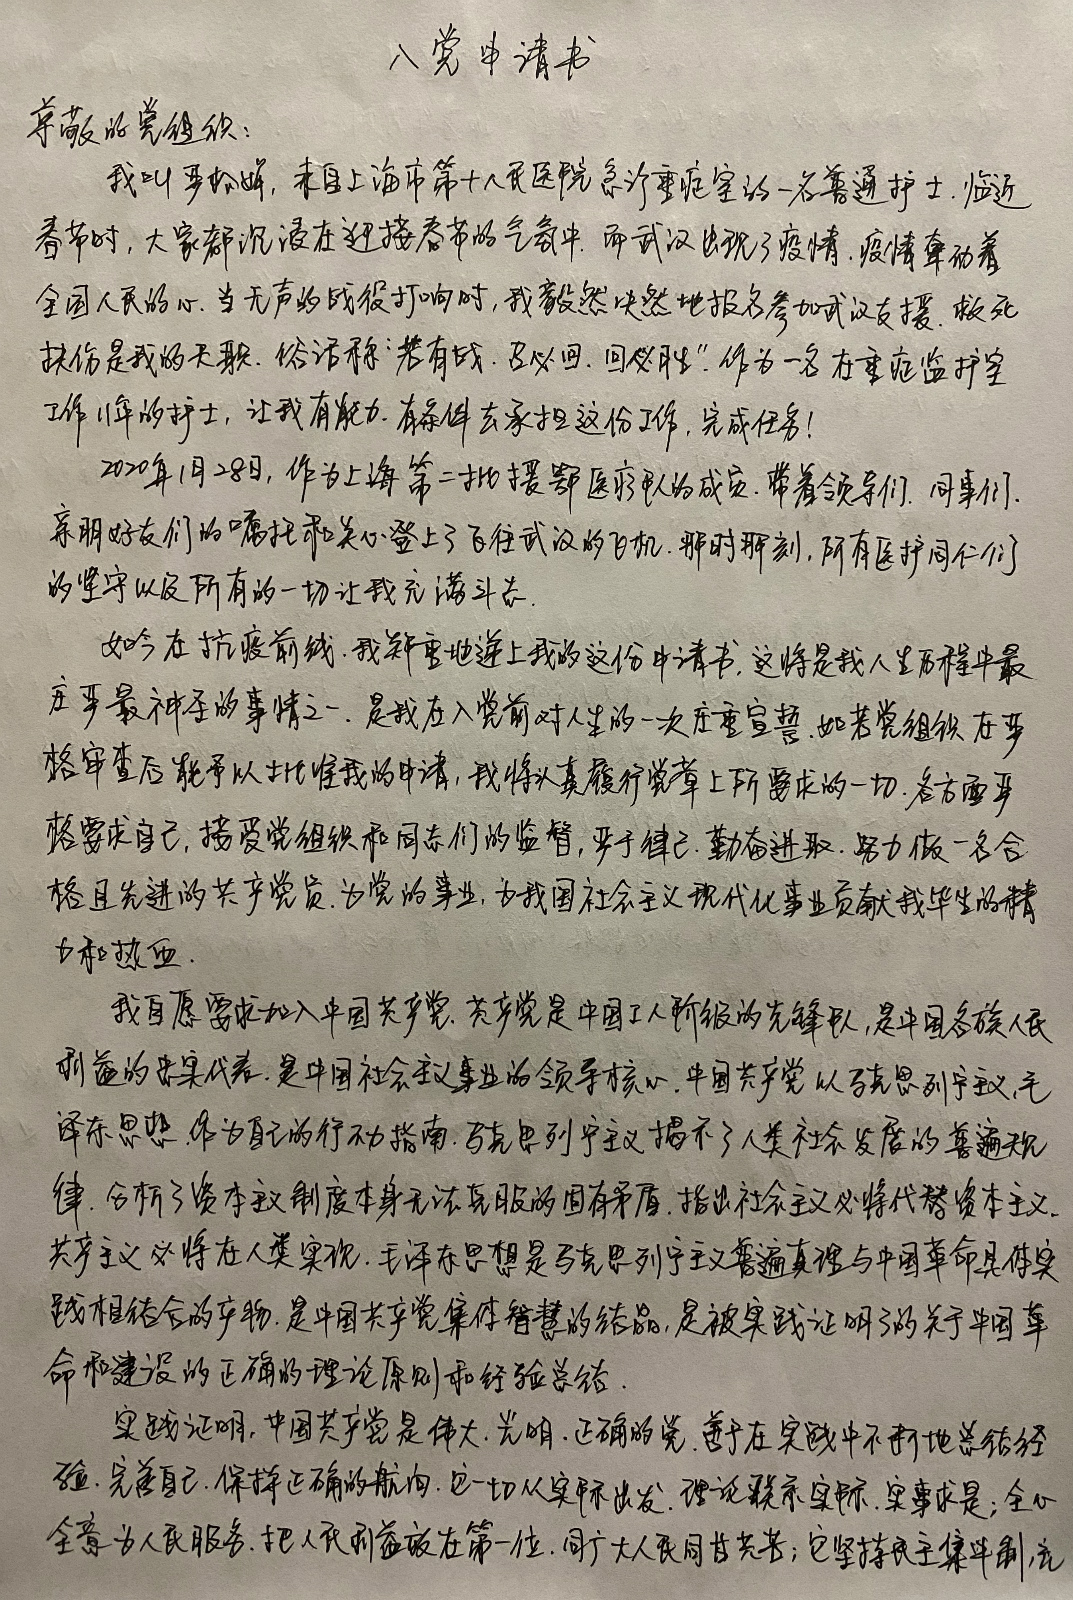 入党申请书
尊敬的党组织：
我叫严松娟，来自上海市第十人民医院急诊重症室的一名普通护士.临近
春节时，大家都沉浸在迎接春节的气氛中.而武汉出现了疫情.疫情牵动着
全国人民的心.当无声的战役打响时，我毅然决然地报名参加武汉支援.救死
扶伤是我的天职.俗话称“若有战.召必回.回必胜”.作为一名在重症监护室
工作11年的护士，让我有能力.有条件去承担这份工作，完成任务！
2020年1月28日，作为上海第二批援鄂医疗队的成员.带着领导们.同事们.
亲朋好友们的嘱托和关心登上了飞往武汉的飞机.那时那刻，所有医护同仁们
的坚守以及所有的一切让我充满斗志.
如今在抗疫前线.我郑重地递上我的这份申请书.这将是我人生历程中最
庄严最神圣的事情之一.是我在入党前对人生的一次庄重宣誓.如若党组织在严
格审查后能予以批准我的申请，我将认真履行党章上所要求的一切.各方面严
格要求自己，接受党组织和同志们的监督，严于律己.勤奋进取.努力做一名合
格且先进的共产党员.为党的事业，为我国社会主义现代化事业贡献我毕生的精
力和热血.
我自愿要求加入中国共产党.共产党是中国工人阶级的先锋队，是中国各族人民
利益的忠实代表.是中国社会主义事业的领导核心.中国共产党以马克思列宁主义，毛
泽东思想.作为自己的行动指南.马克思列宁主义揭示了人类社会发展的普遍规
律.分析了资本主义制度本身无法克服的固有矛盾.指出社会主义必将代替资本主义.
共产主义必将在人类实现.毛泽东思想是马克思列宁主义普遍真理与中国革命具体实
践相结合的产物.是中国共产党集体智慧的结晶，是被实践证明了的关于中国革
命和建设的正确的理论原则和经验总结.
实践证明，中国共产党是伟大.光明.正确的党.善于在实践中不断地总结经
验.完善自己.保持正确的航向.它一切从实际出发.理论联系实际.实事求是；全心
全意为人民服务.把人民利益放在第一位.同广大人民同甘共苦；它坚持民主集中制，在